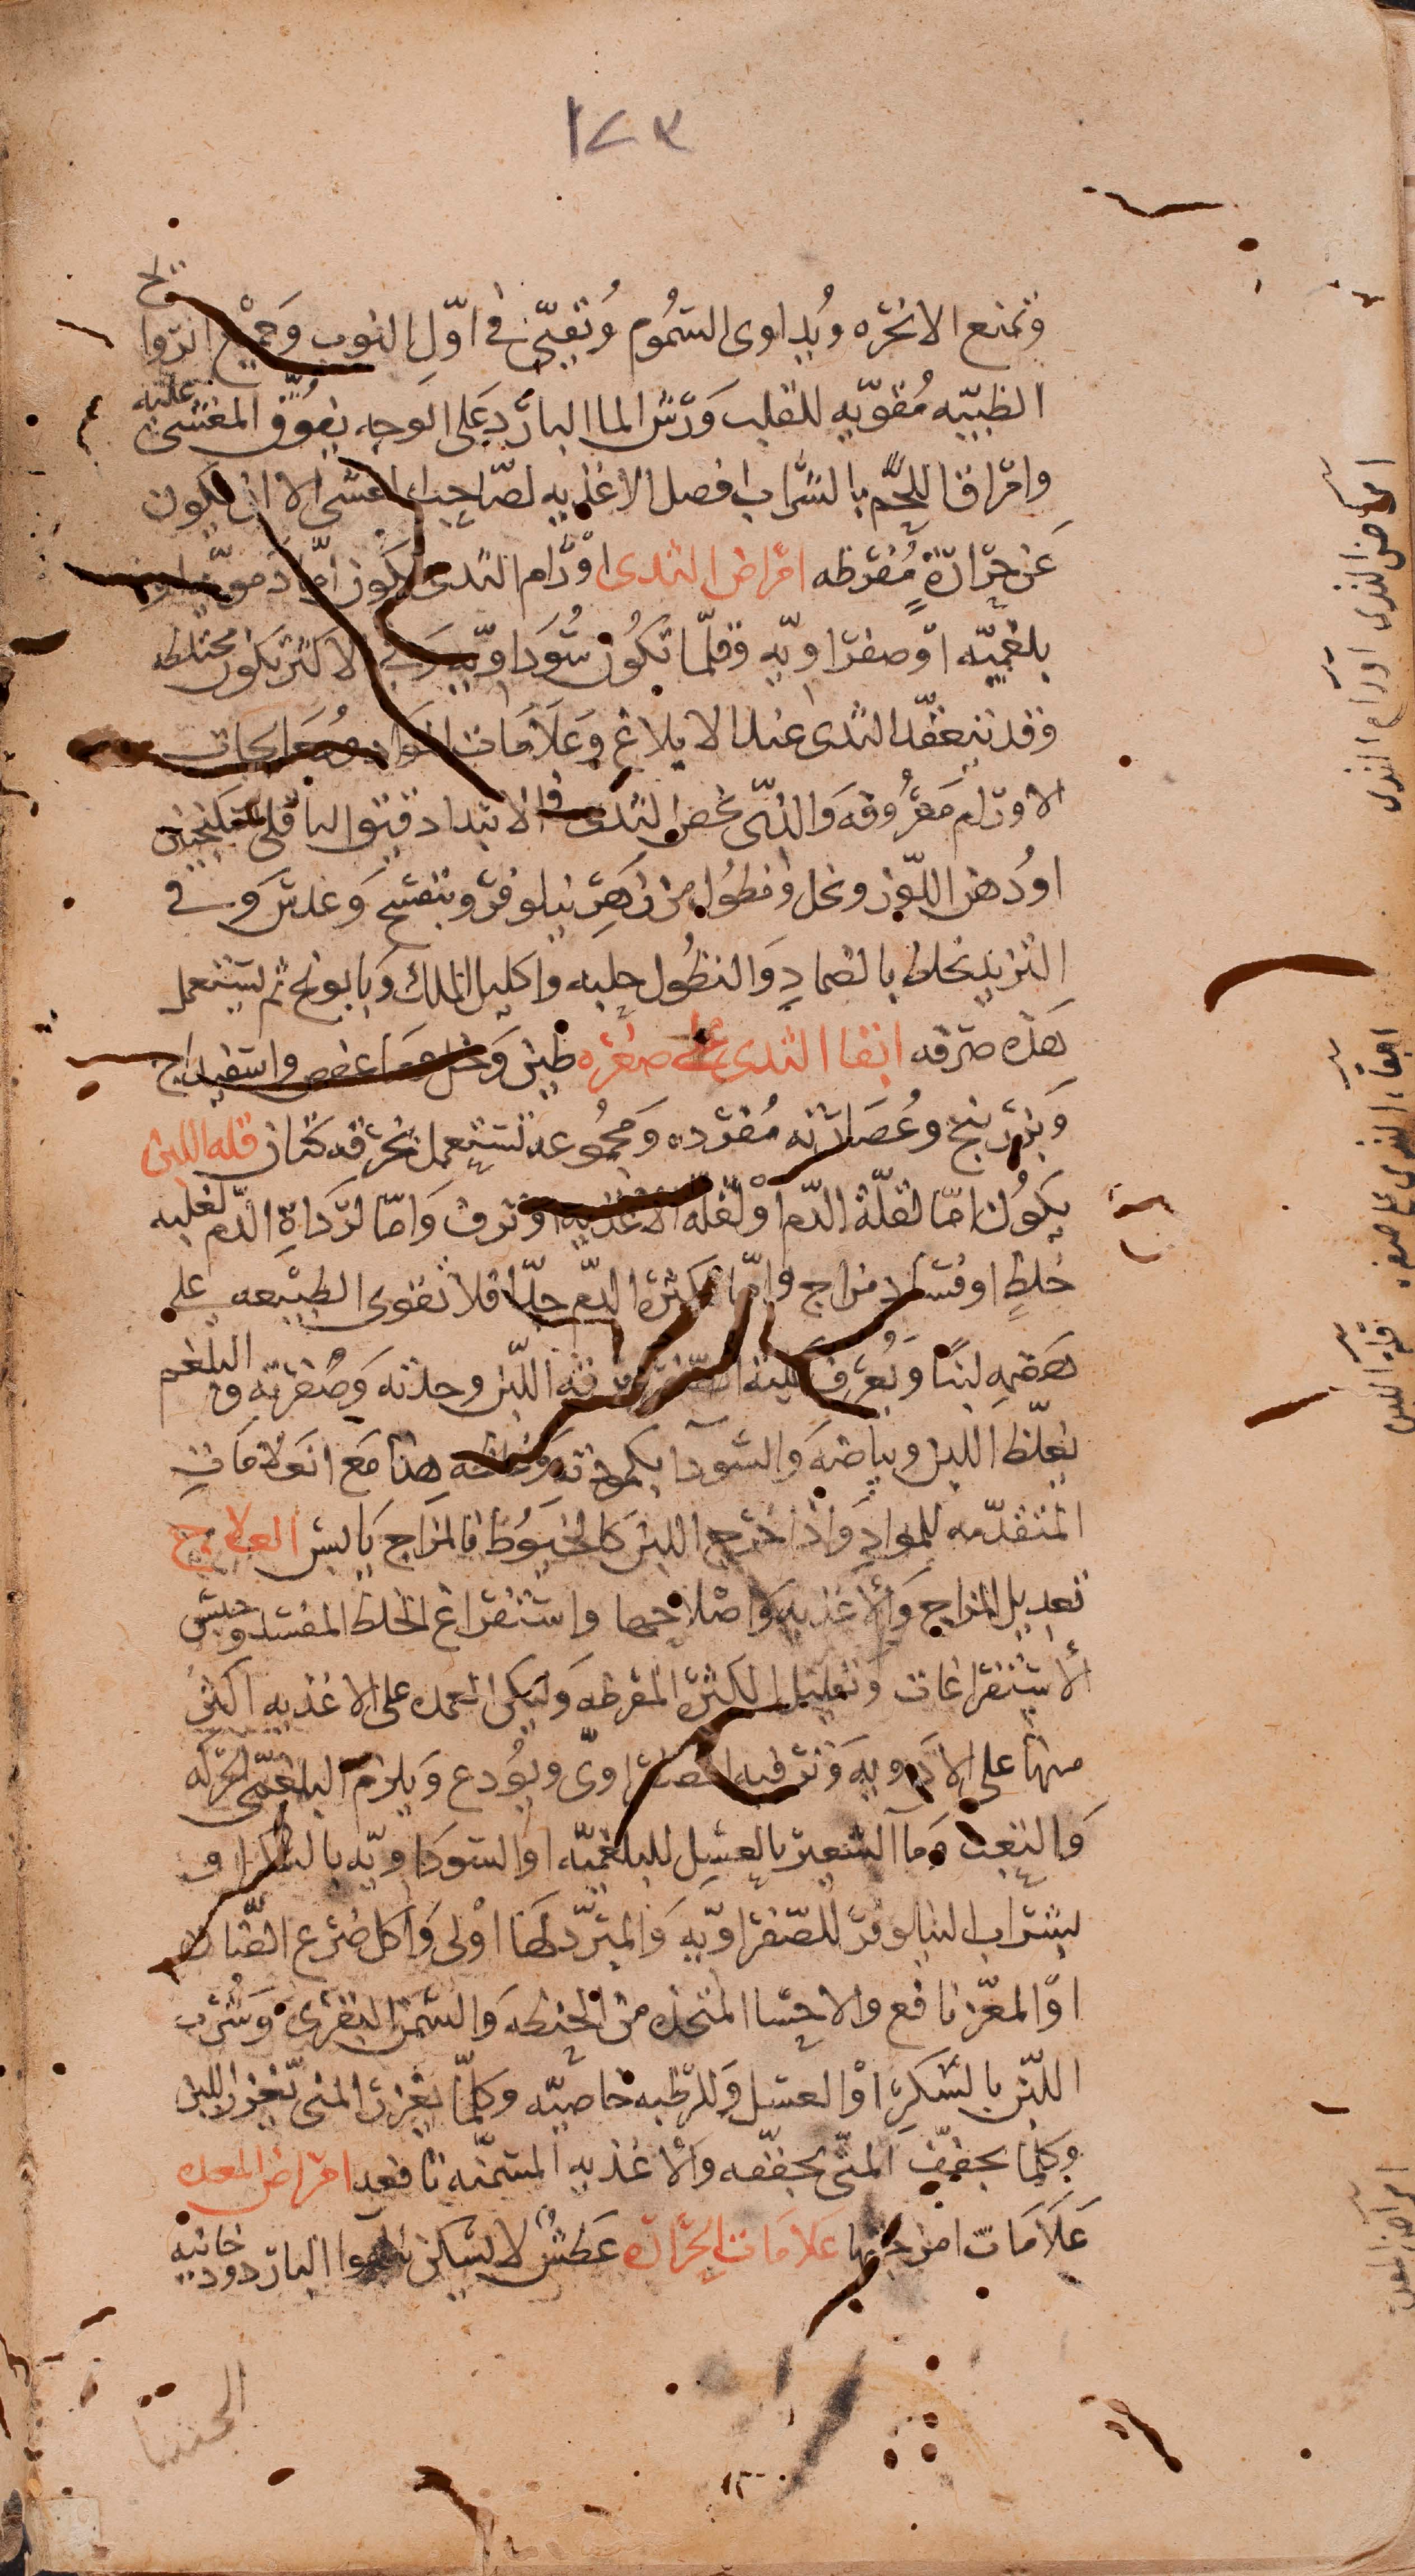 ١٧٣
وتمنع الابخره ويداوى السموم ويقيى في اول النوب وجميع الروا
ئح
الطيبه مقويه للقلب ورش الما البارد على الوجه يفوق المغشى عليه
وامراق اللحم بالشراب افضل الاغذيه لصاحب الغشى الا ان يكون
عن حرارة مفرطه امراض الثدى اورام الثدى تكون اما دمويه او
بلغميه او صفراويه وقلما تكون سوداويه وفي الاكثر تكون مختلطه
وقد يتعقد الثدى عند الابلاغ وعلامات المواد ومعالجات
الاورام معروفه والذى يخص الثدى في الابتدا دقيق الباقلى بسكنجبين
او دهن اللوز وخل ونطول من زهر نيلوفر وبنفسج وعدس وفي
التزيد يخلط بالضماد والنطول حلبه واكليل الملك وبابونج ثم يستعمل
هذه صرفه ابقا الثدى على صغره طين وخل وعفص واسفيداج
وبزر بنج وعصارته مفرده ومجموعه تستعمل بخرقه كتان قله اللبن
يكون اما لقلة الدم او لقله الاغذيه او نزف واما لرداة الدم لغلبه
خلط او فساد مزاج واما لكثرة الدم جدا فلا تقوى الطبيعه على
هضمه لبنا ويعرف غلبة الصفرا برقه اللبن وحدته وصفرته والبلغم
بغلظ اللبن وبياضه والسودا بكمودته وغلظه هذا مع العلامات
المتقدمه للمواد واذا خرج اللبن كالخيوط فالمزاج يابس العلاج
تعديل المزاج والاغذيه واصلاحها واستفراغ الخلط المفسد وحبس
الاستفراغات وتقليل الكثرة المفرطه وليكن العمده على الاغذيه اكثر
منها على الادويه وترفيه الصفراوى ويودع ويلزم البلغمى الحركه
والتعب وما الشعير بالعسل للبلغميه او السوداويه بالسكر او
بشراب النيلوفر للصفراويه والمبرد لها اولى واكل ضرع الضان
او المعز نافع والاحسا المتخذه من الحنطه والسمن البقرى وشرب
اللبن بالسكر او العسل وللرطبه خاصيه وكلما يغزر المنى يغزر اللبن
وكلما يجفف المنى يجففه والاغذيه المسمنه نافعه امراض المعده
علامات امزجتها علامات الحراره عطش لا يسكن بالهوا البارد ودخانيه
الجشا
امراض الثدى اورام الثدى
ابقا الثدى على صغره
قله اللبن
امراض المعده